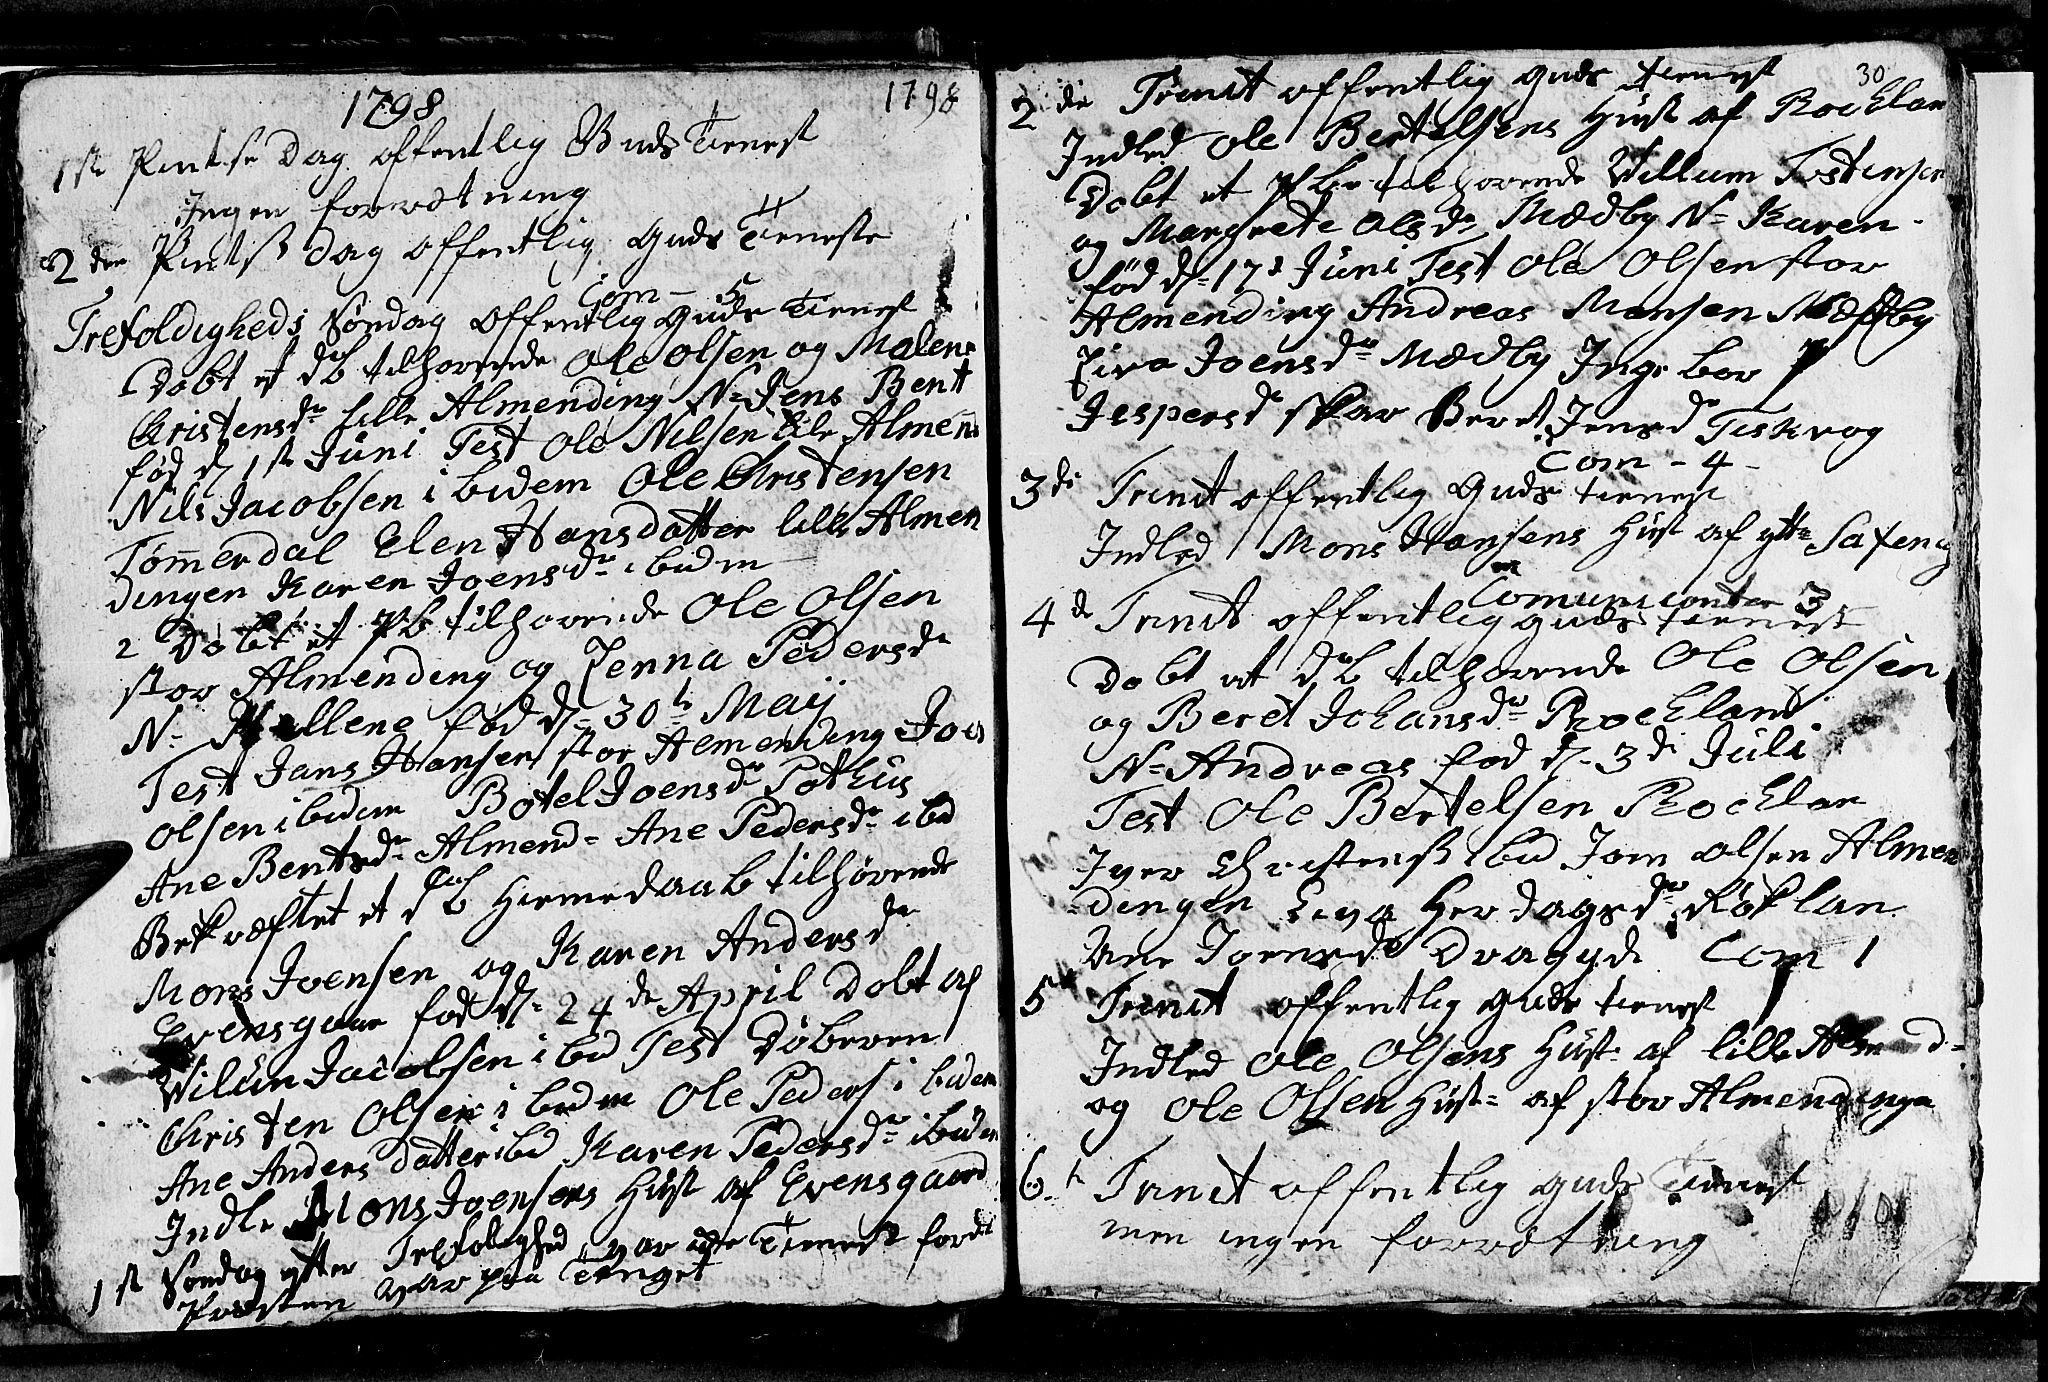 1798
1798
1st Pintse Dag offentlig Guds Tienest
Ingen forrætning
2den Pintsß dag offentlig Guds Tieneste
Com – 5
Trefoldigheds Søndag offentlig Guds Tienest
Døbt et db tilhørende Ole Olsen og Malene
Christensdr lille Almending N= Jens Bent
fød d 1st Juni Test Ole Nilsen lile Almen
Nils Jacobsen ibidem Ole Christensen
Tømerdal Elen Hansdatter lille Almen
dingen Karen Joensdr ibidem
2 Døbt et pb tilhørende Ole Olsen
stor Almending og Zenna Pedersdr
N= Pellene fød d= 30t Maij
Test Jans Hansen stor Almending Joen
Olsen ibidem Botel Joensdr Pothus
Ane Bentsdr Almend= Ane Pedersdr ibd
Bekræftet et db Hiemedaab tilhørende
Mons Joensen og Karen Andersdr
Evensgaar fød d= 24de April Døbt af
Wilum Jacobsen ibd Test Døberen
Christen Olsen ibidem Ole Peders ibidem
Ane Anders datter ibd Karen Pedersdr ibidem
Indle Mons Joensens Hust af Evensgaard
1st Søndag ytter Trefolighed var icke Tienest fordi
Præsten var paa Tinget
30
2de Trinit offentlig Guds tienest
Indled Ole Bertelsens Hust af Rocklan
Døbt et pbr tilhørende Willum Tostensen
og Margrete Olsdr Mædby N= Karen
fød d= 17d Juni Test Ole Olsen stor
Almending Andreas Monsen Mædby
Ziva Joensdr Mædby Ingebor
Jespersdr skar Beret Jensdr Teskrog
Com – 4 –
3de Trinit offentlig Guds tienest
Indled Mons Hansens Hust af ytt= Saxenvig
Comunicanter 3
4de Trinit offentlig guds tienest
Døbt et db tilhørende Ole Olsen
og Beret Johansdr Rockland
N= Andreas fød d= 3de Juli
Test Ole Bertelsen Rocklan
Iver Christensß ibid Jon Olsen Almen
dingen Siva Herdagsdr Røklan
Ane Joensdr Dragyde Com 1
5t Trinit offentlig guds tienest
Indled Ole Olsens Hust= af lille Almend=
og Ole Olsen Hust= af stor Almendinga
6t Trinit offentlig guds tienest
men ingen forrætning